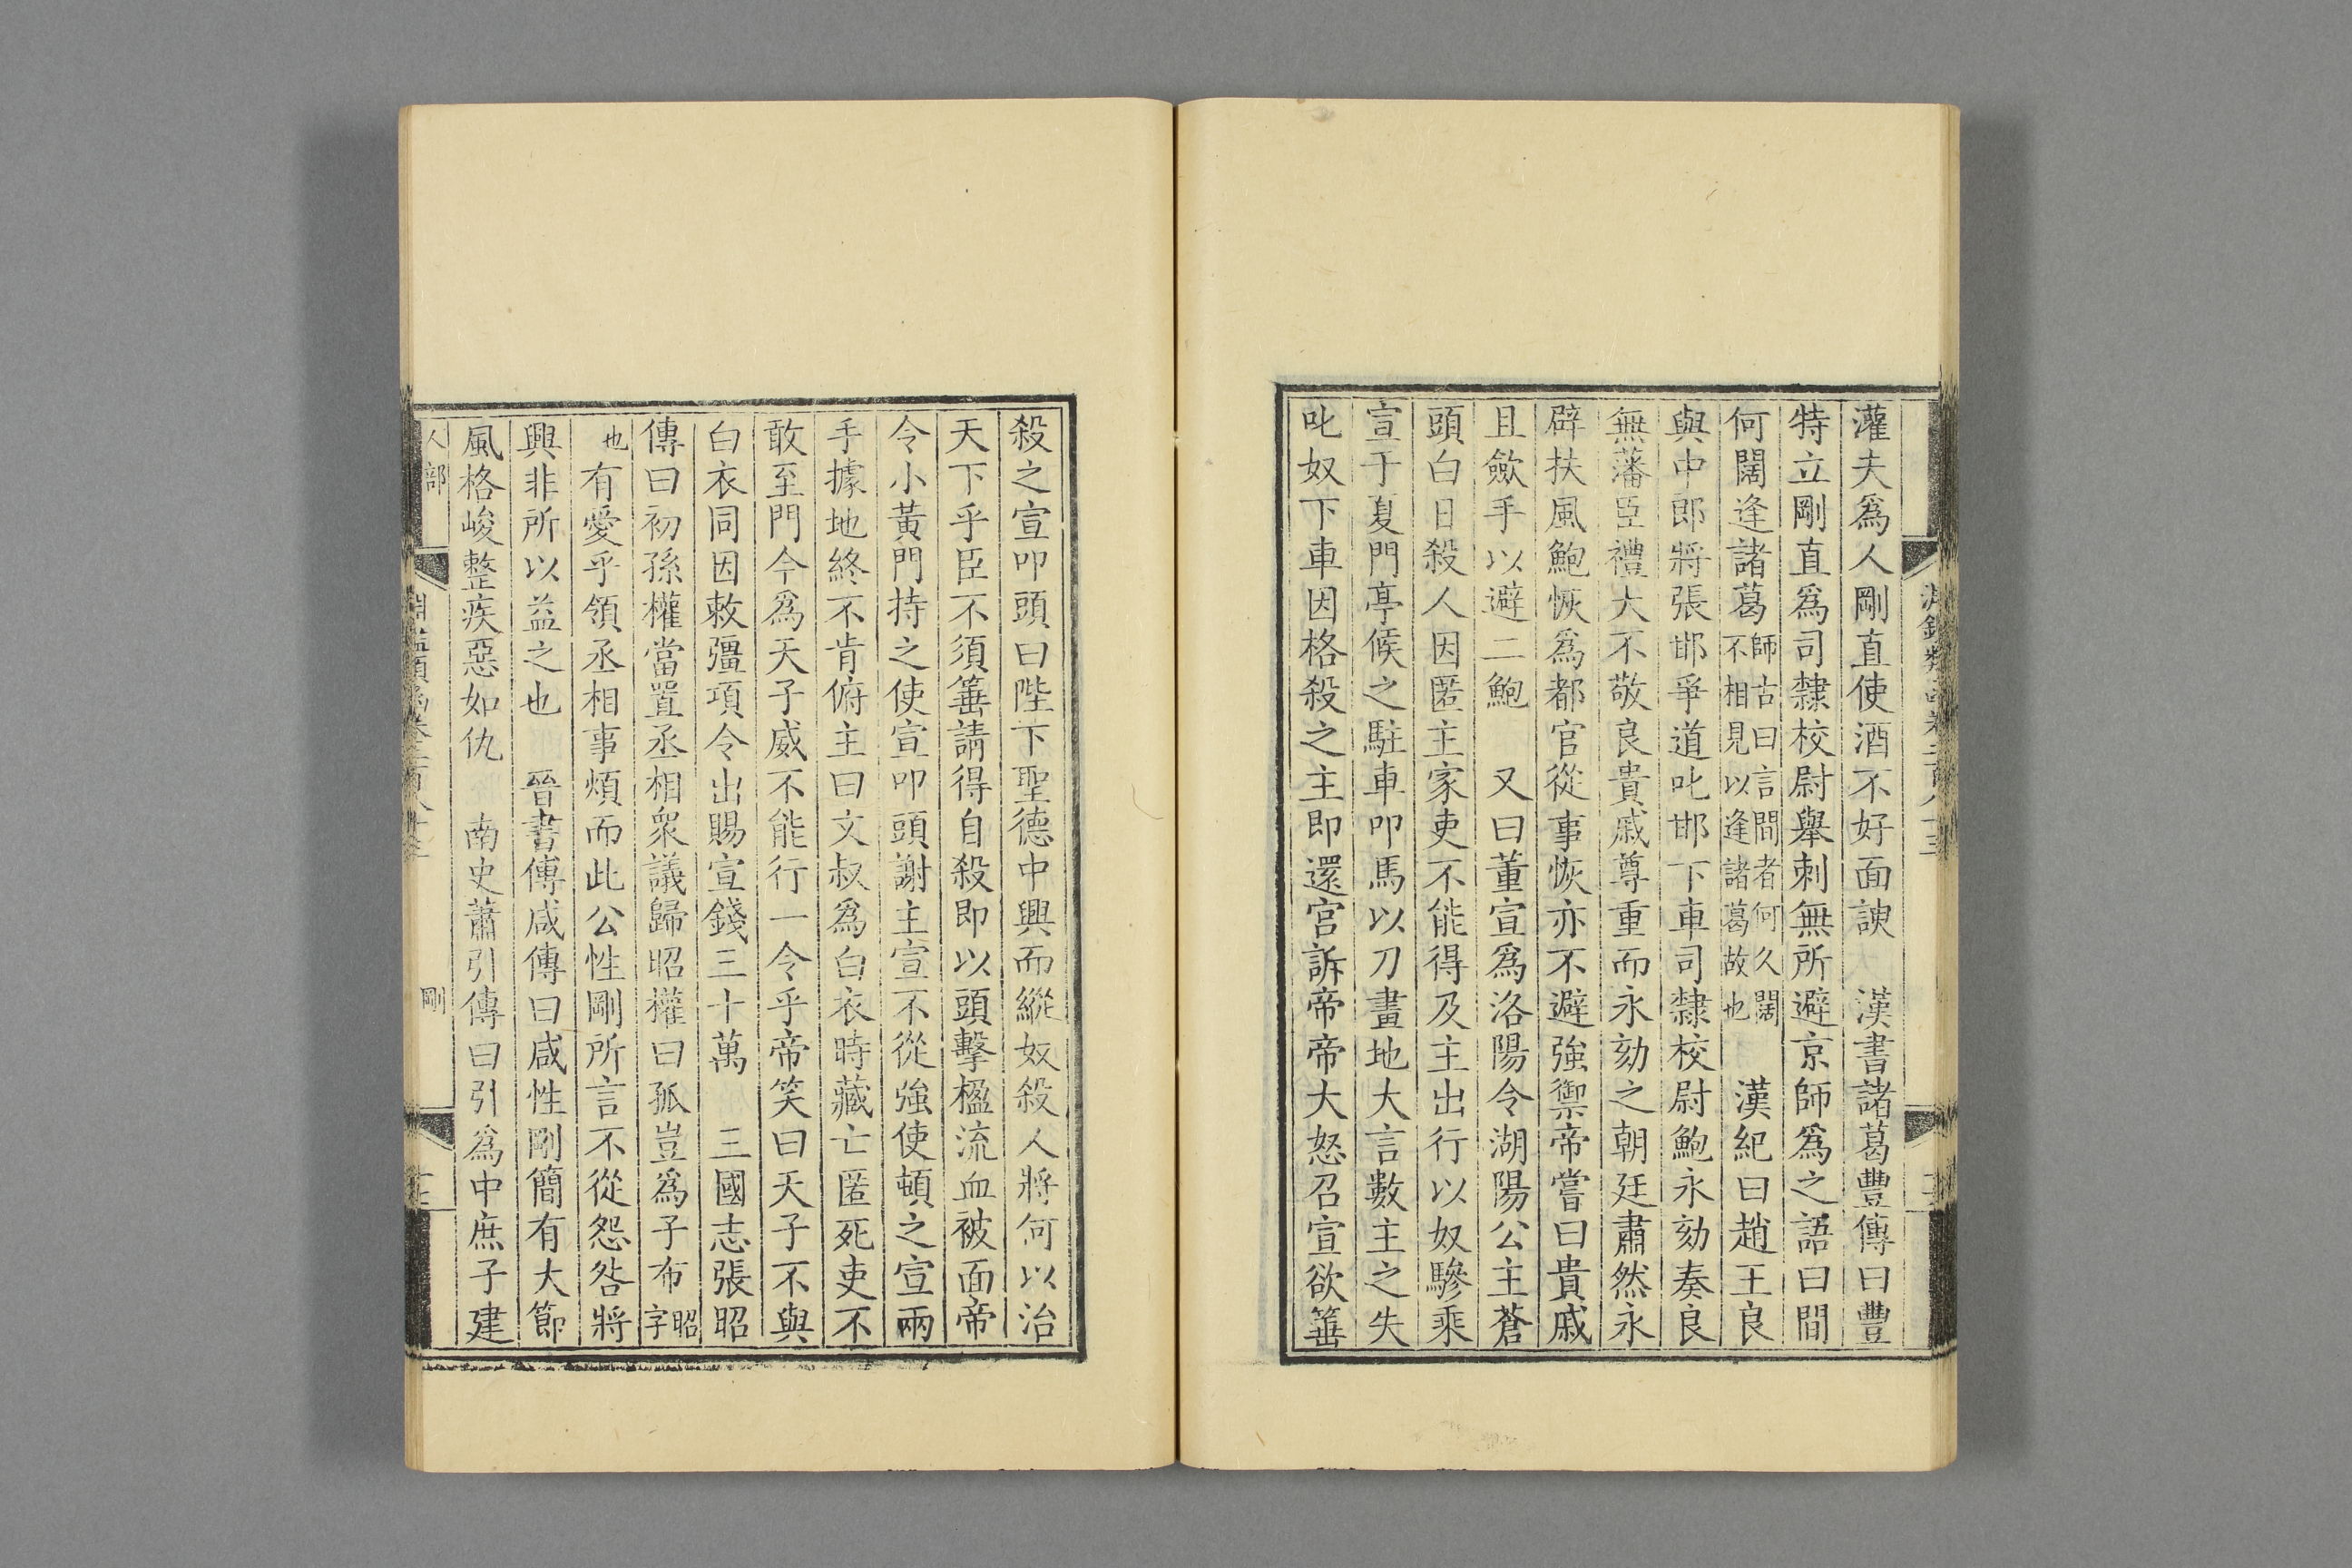 灌夫爲人剛直使酒不好面諛　漢書諸葛豐傳曰豐
特立剛直爲司隸校尉舉刺無所避京師爲之語曰間
何闊逢諸葛師古曰言間者何久闊不相見以逢諸葛故也　漢紀曰趙王良
與中郎將張邯爭道叱邯下車司隸校尉鮑永劾奏良
無藩臣禮大不敬良貴戚尊重而永劾之朝廷肅然永
辟扶風鮑恢爲都官從事恢亦不避強禦帝嘗曰貴戚
且斂手以避二鮑　又曰董宣爲洛陽令湖陽公主蒼
頭白日殺人因匿主家吏不能得及主出行以奴驂乘
宣于夏門亭候之駐車叩馬以刀畫地大言數主之失
叱奴下車因格殺之主即還宮訴帝帝大怒召宣欲箠
殺之宣叩頭曰陛下聖德中興而縱奴殺人將何以治
天下乎臣不須箠請得自殺即以頭擊楹流血被面帝
令小黃門持之使宣叩頭謝主宣不從強使頓之宣兩
手據地終不肯俯主曰文叔爲白衣時藏亡匿死吏不
敢至門今爲天子威不能行一令乎帝笑曰天子不與
白衣同因敕彊項令出賜宣錢三十萬　三國志張昭
傳曰初孫權當置丞相衆議歸昭權曰孤豈爲子布昭字
也有愛乎領丞相事煩而此公性剛所言不從怨咎將
興非所以益之也　晉書傅咸傳曰咸性剛簡有大節
風格峻整疾惡如仇　南史蕭引傳曰引爲中庶子建
人部
剛